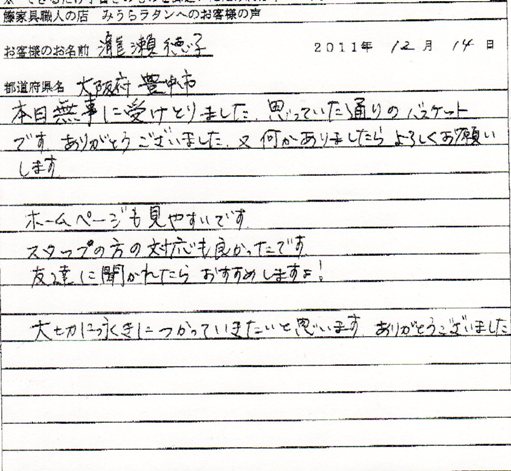 藤家具職人の店 みうらラタンへのお客様の声
お客様のお名前 瀧瀬 徳子 2011年 12月 14日
都道府県名 大阪府 豊中市
本日無事に受けとりました。思っていた通りのバスケット
です ありがとうございました。又 何かありましたら よろしくお願い
します
ホームページも見やすいです
スタップの方の対応も良かったです
友達に聞かれたら おすすめしますよ!
大切に永きに つかっていきたいと思います ありがとうございました